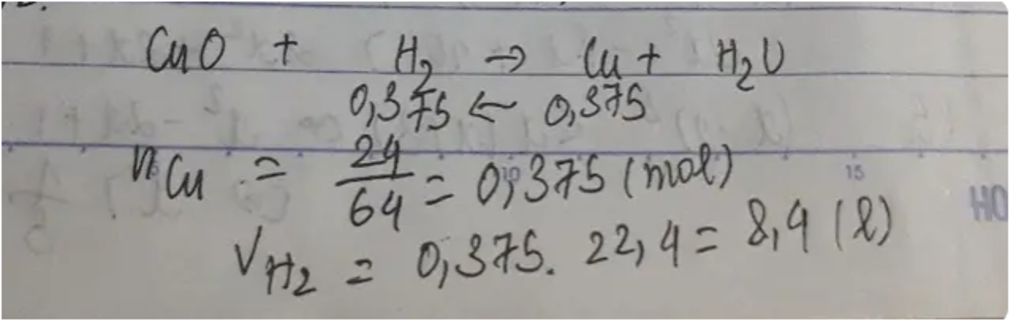 CuO + H₂ → Cu + H₂O
0,375 ← 0,375
nCu = 24/64 = 0,375 (mol)
VH₂ = 0,375. 22,4 = 8,4 (l)
15
HO